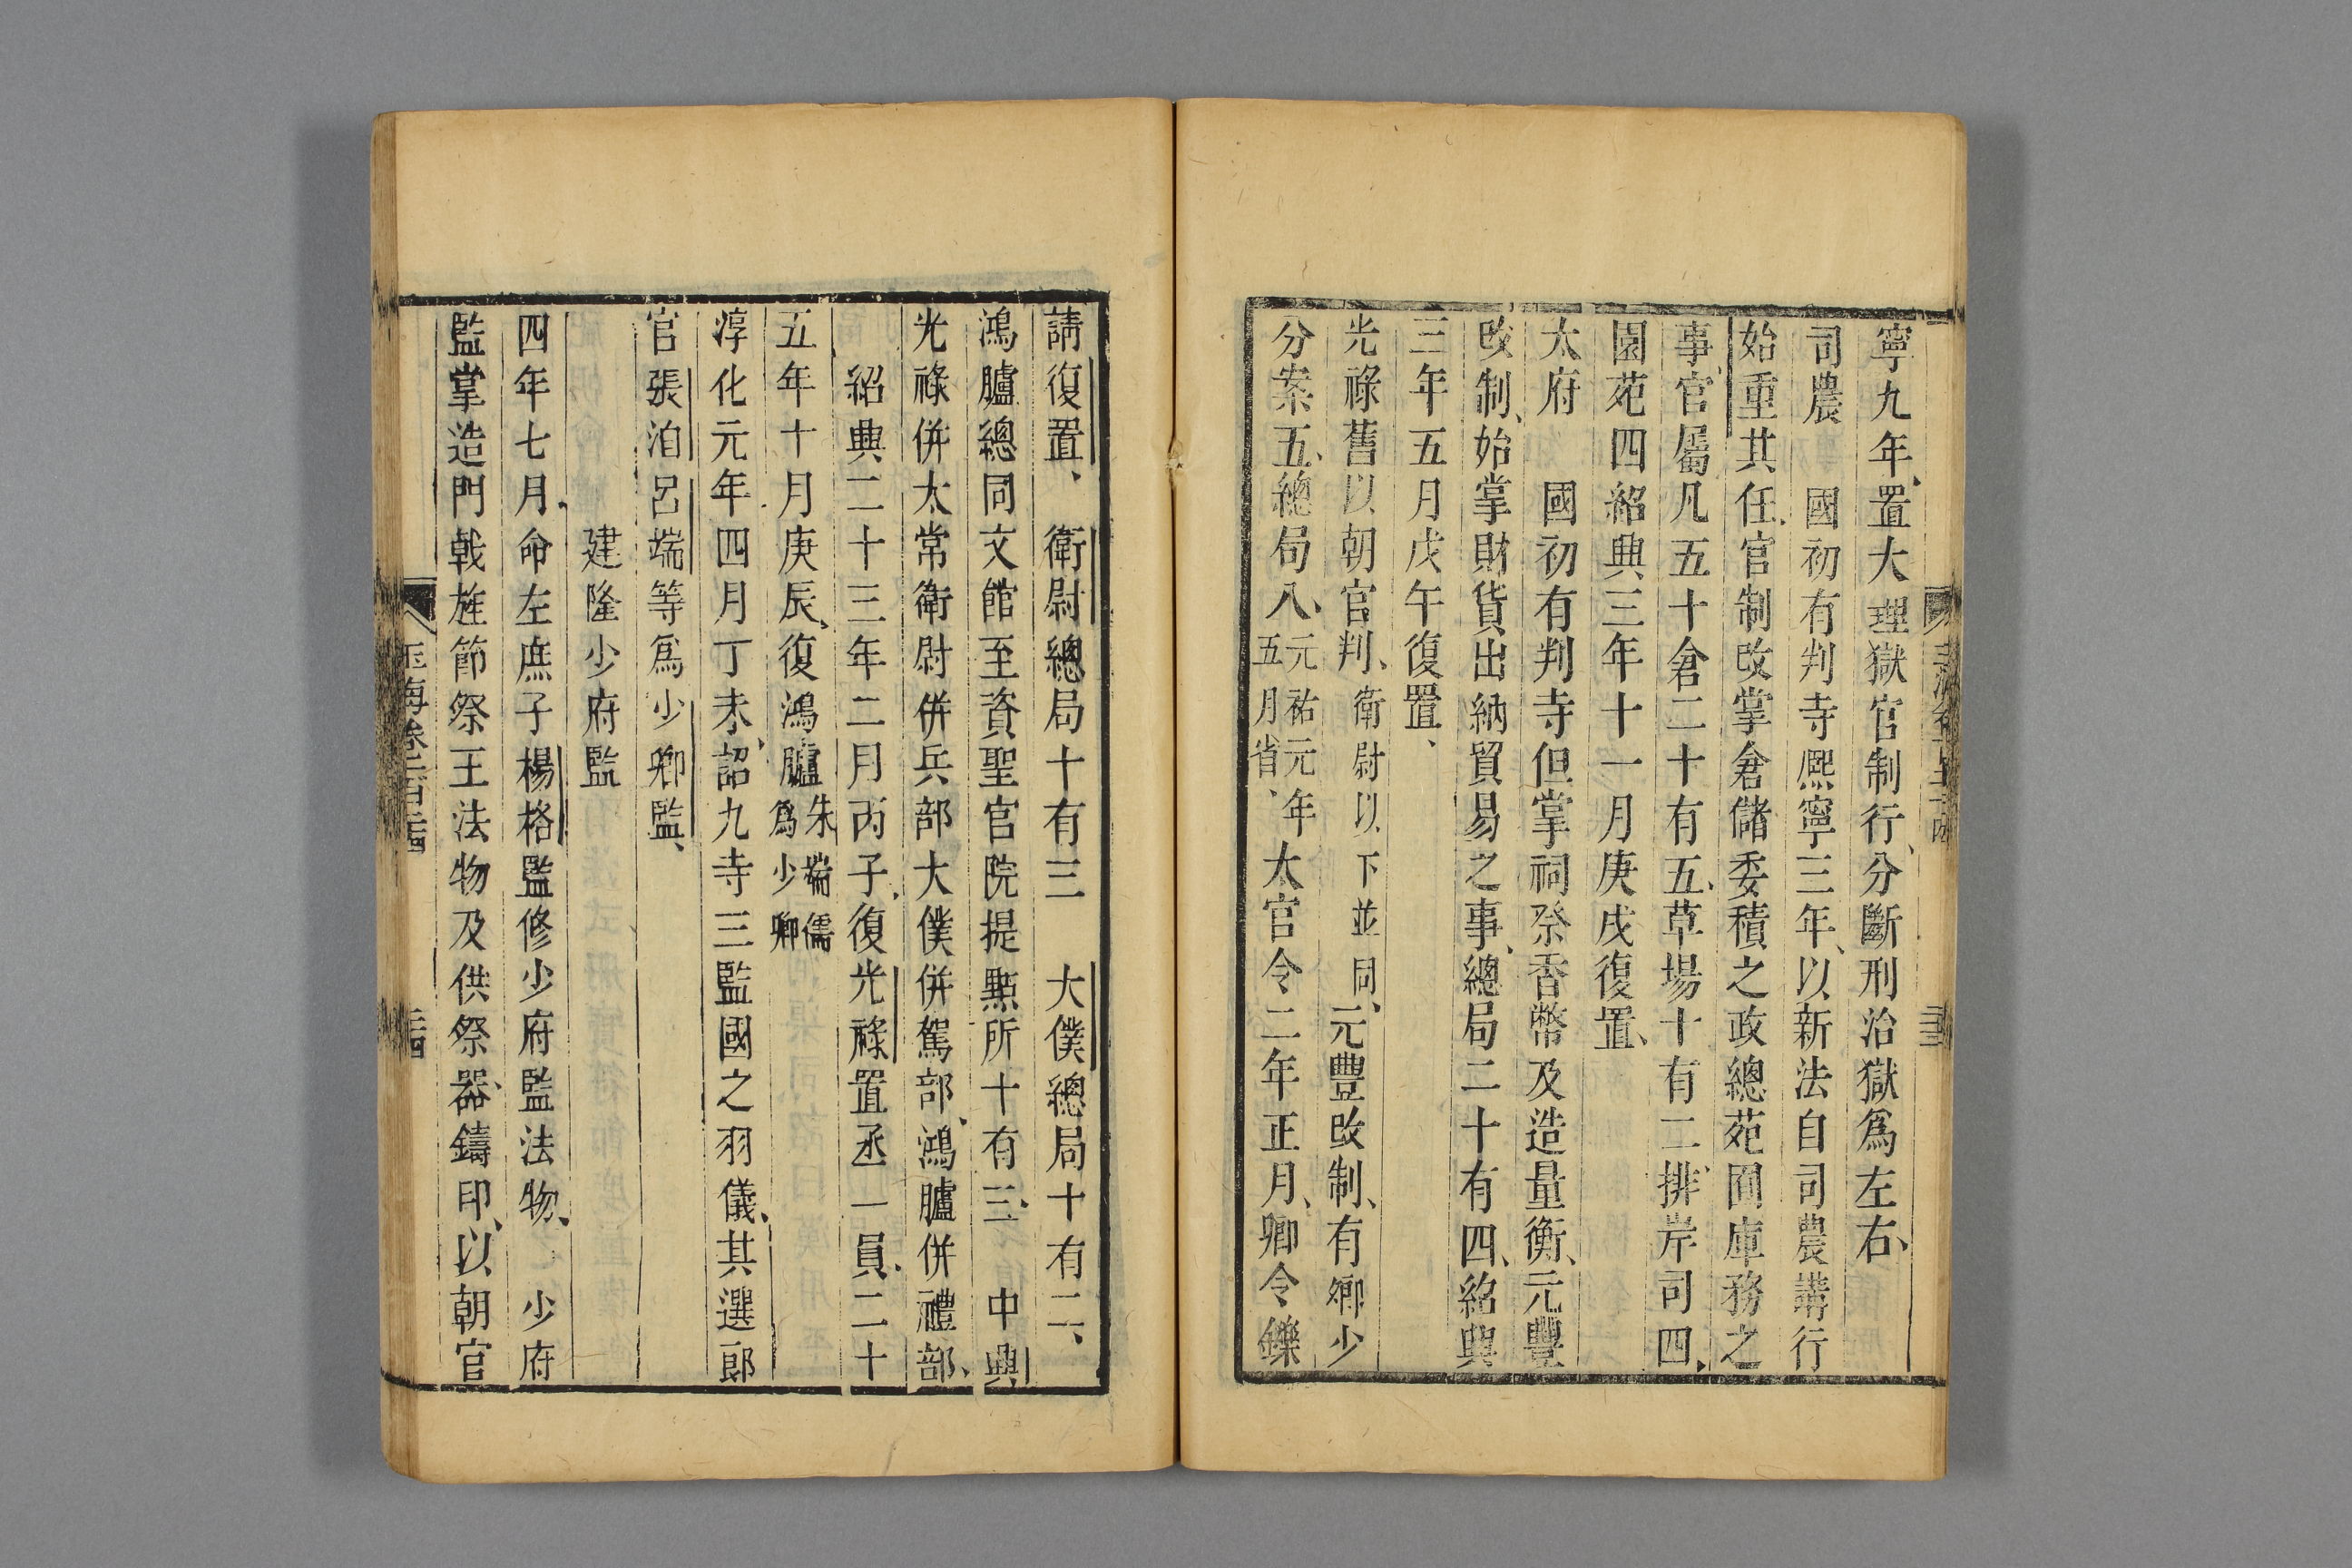 寧九年、置大理獄官制行、分斷刑治獄爲左右、
司農　國初有判寺熈寧三年、以新法自司農講行
始重其任、官制改掌倉儲委積之政總苑囿庫務之
事、官屬凡五十倉二十有五、草場十有二、排岸司四、
園苑四紹興三年十一月庚戌復置、
太府　國初有判寺但掌祠祭香幣及造量衡、元豐
改制、始掌財貨出納貿易之事、總局二十有四、紹興
三年五月戊午復置、
光祿舊以朝官判、衛尉以下並同、元豐改制、有卿少
分案五、總局八、元祐元年五月省、太官令二年正月、卿令鑠
請復置、　衛尉總局十有三　大僕總局十有二、
鴻臚總同文館至資聖官院提㸃所十有三、　中興
光祿併太常衛尉併兵部大僕併駕部、鴻臚併禮部、
紹興二十三年二月丙子、復光祿置丞一員、二十
五年十月庚辰、復鴻臚朱端儒爲少卿
淳化元年四月丁未、詔九寺三監國之羽儀、其選郎
官張洎呂端等爲少卿監、
建隆少府監
四年七月、命左庶子楊格監修少府監法物、　少府
監掌造門戟旌節祭王法物及供祭器、鑄印、以朝官
玉海卷一百二十四